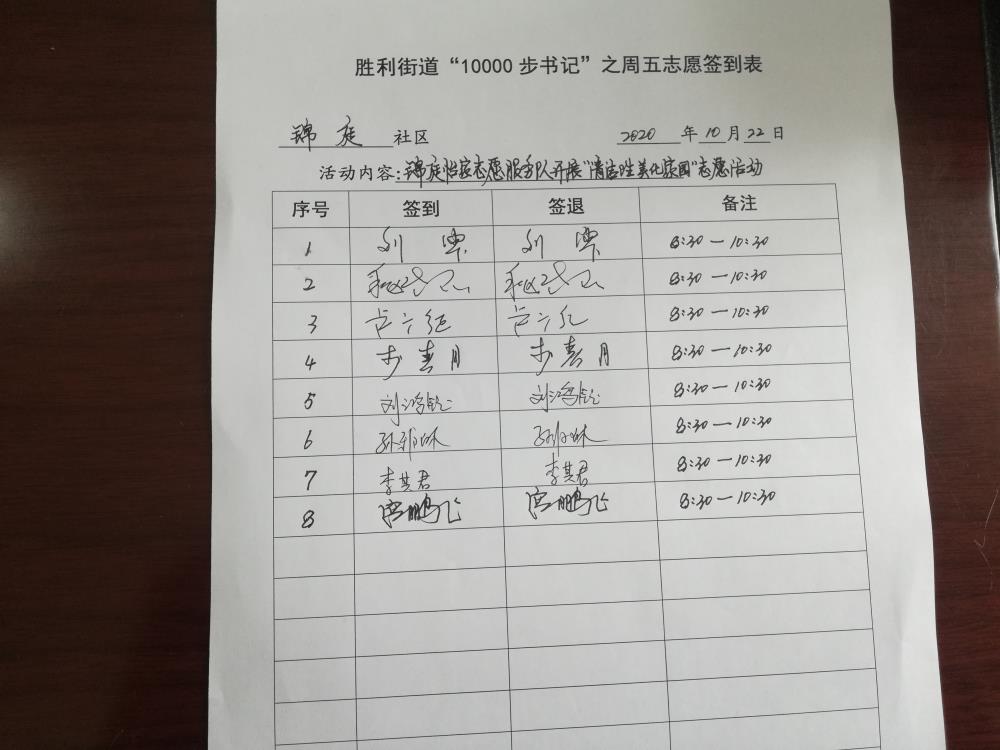 胜利街道“10000步书记”之周五志愿签到表
锦庭 社区 2020 年 10 月 22 日
活动内容：锦庭怡家志愿服务队开展“清洁 美化家园”志愿活动
序号 签到 签退 备注
1 刘 刘 8:30—10:30
2 8:30—10:30
3 卢 卢 8:30—10:30
4 步春月 步春月 8:30—10:30
5 刘鸿 刘鸿 8:30—10:30
6 孙 孙 8:30—10:30
7 李其君 李其君 8:30—10:30
8 宫鹏飞 宫鹏飞 8:30—10:30